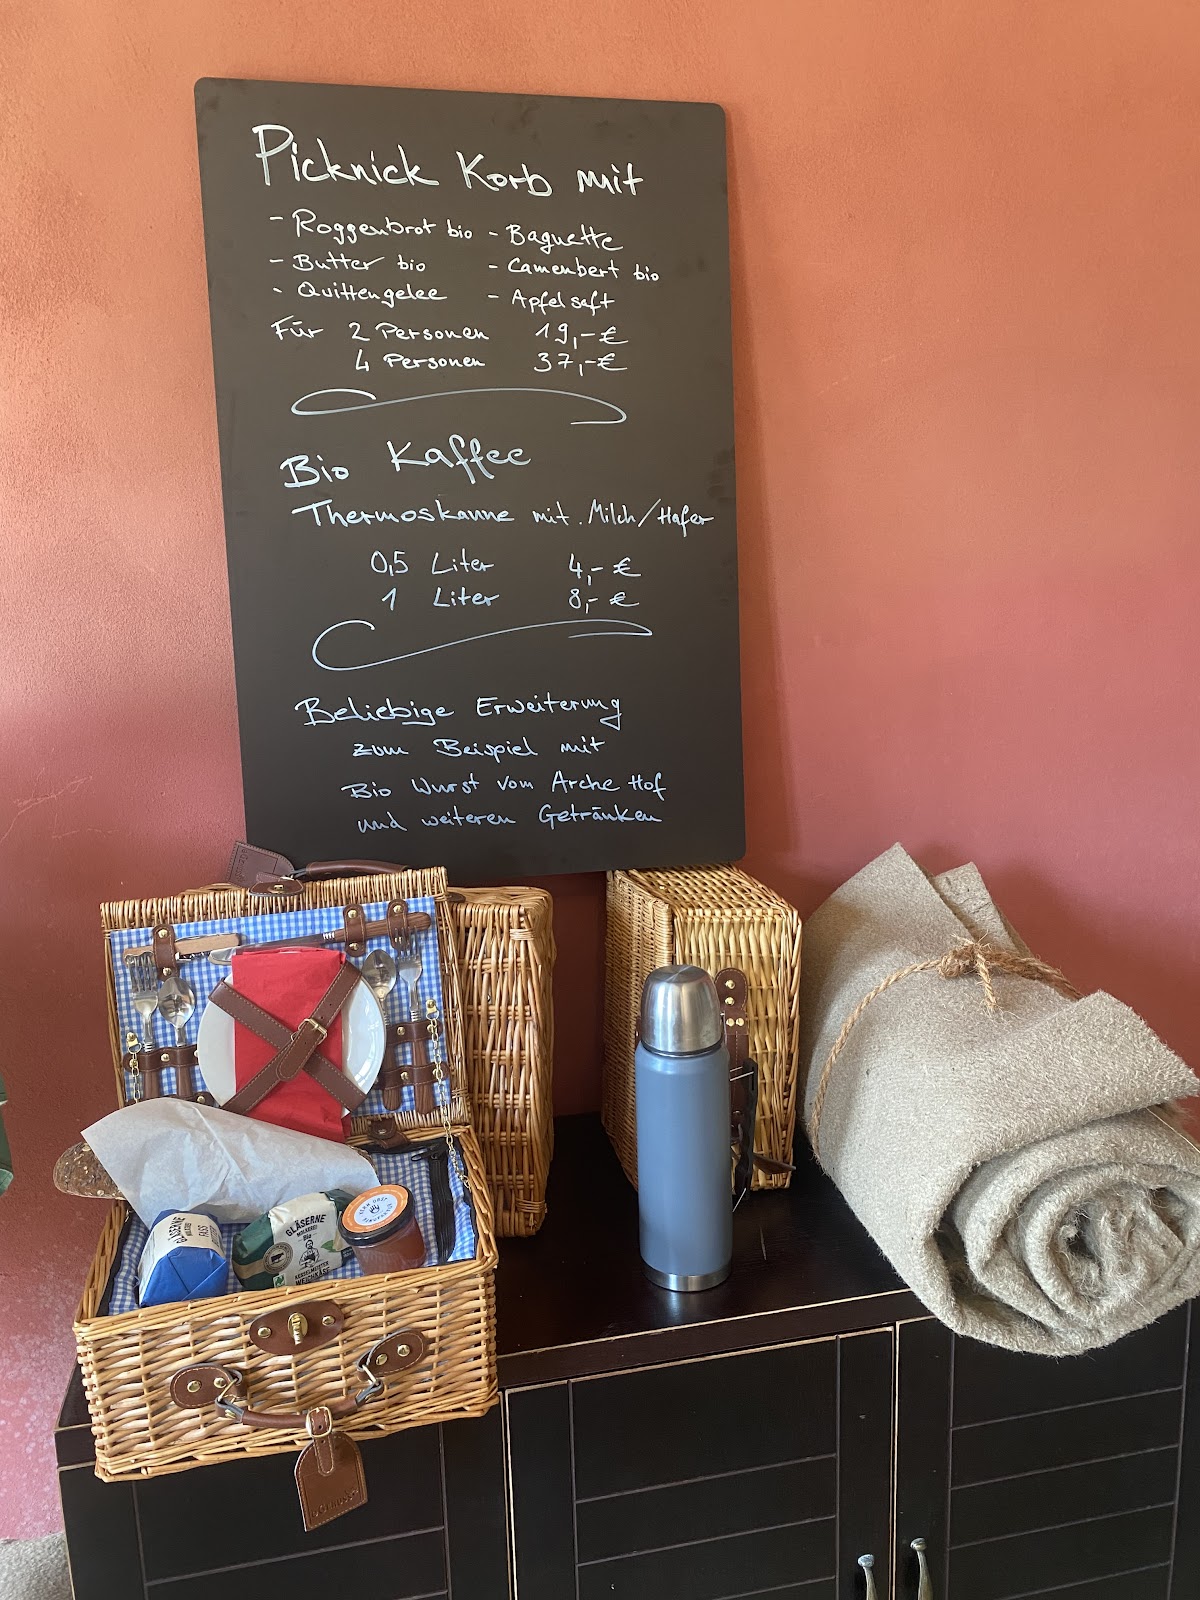 Picknick Korb mit
- Roggenbrot bio - Baguette
- Butter bio - Camenbert bio
- Quittengelee - Apfelsaft
Für 2 Personen 19,-€
4 Personen 37,-€
Bio Kaffee
Thermoskanne mit. Milch/Hafer
0,5 Liter 4,- €
1 Liter 8,- €
Beliebige Erweiterung
zum Beispiel mit
Bio Wurst vom Arche Hof
und weiteren Getränken
GLÄSERNE
FASS
GLÄSERNE
MOLKEREI
Bio
WEICHKÄSE